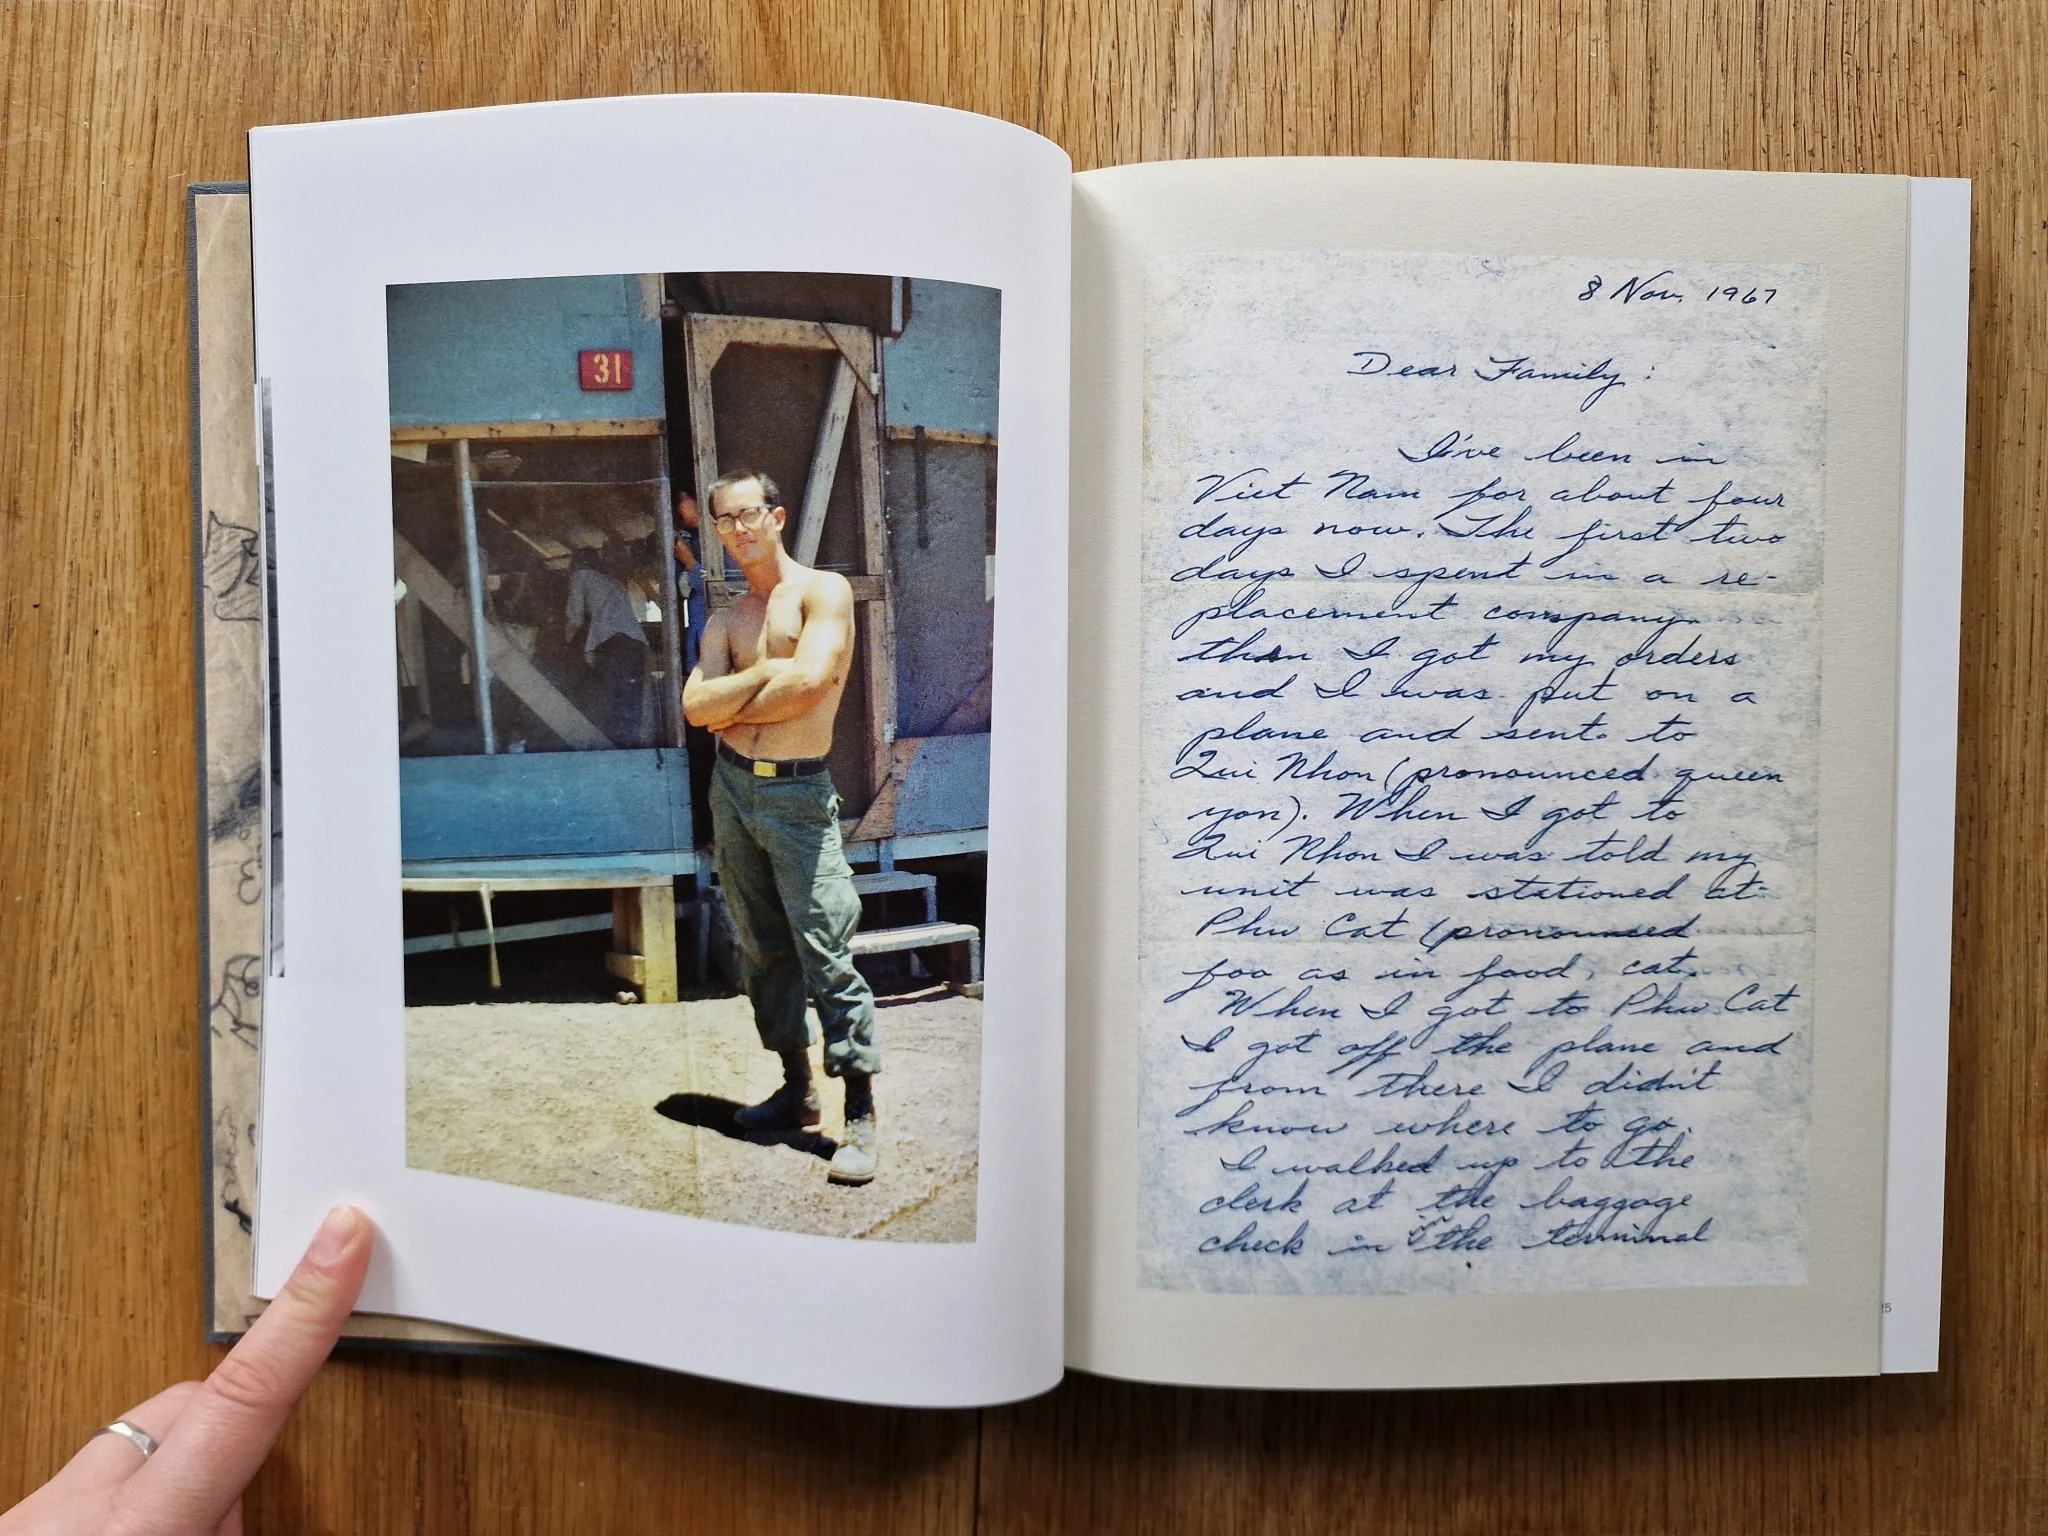 31
8 Nov. 1967
Dear Family:
I've been in
Viet Nam for about four
days now. The first two
days I spent in a re-
placement company
then I got my orders
and I was put on a
plane and sent to
Qui Nhon (pronounced queen
yon). When I got to
Qui Nhon I was told my
unit was stationed at
Phu Cat (pronounced
foo as in food, cat.
When I got to Phu Cat
I got off the plane and
from there I didn't
know where to go.
I walked up to the
clerk at the baggage
check in in the terminal